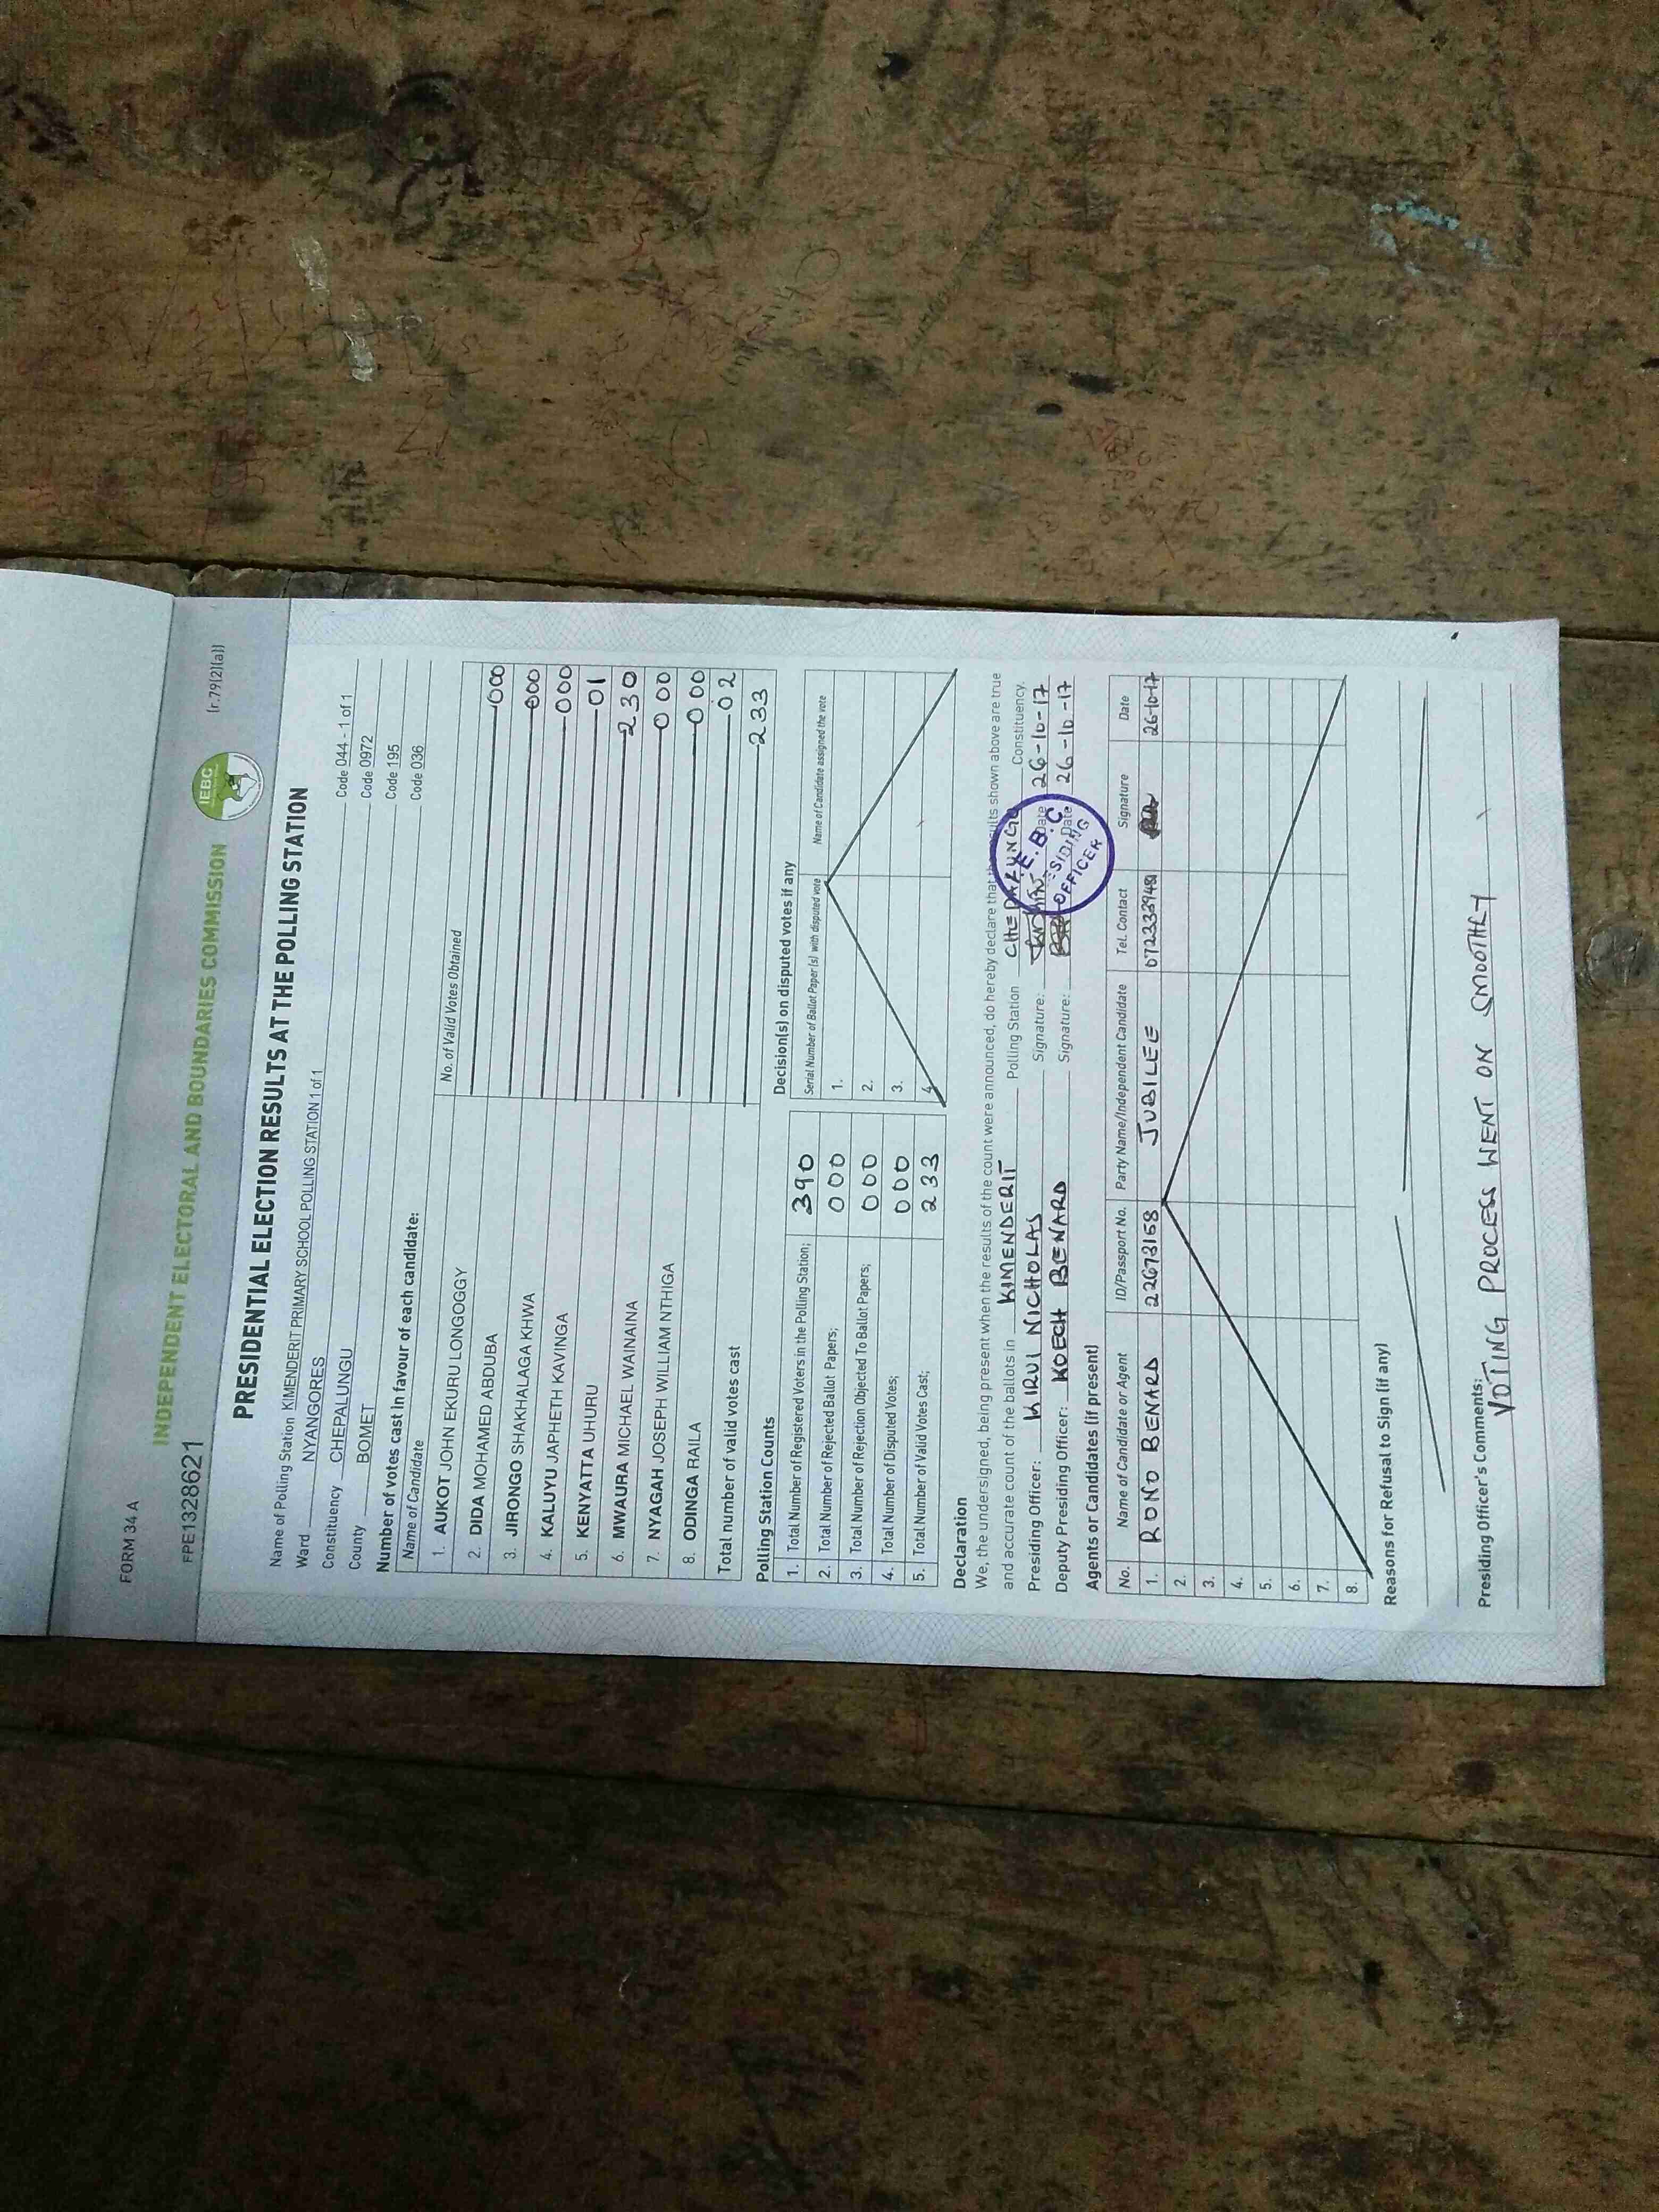 FORM 34 A
(r.79(2)(a))
FPE1328621
INDEPENDENT ELECTORAL AND BOUNDARIES COMMISSION
IEBC
PRESIDENTIAL ELECTION RESULTS AT THE POLLING STATION
Name of Polling Station KIMENDERIT PRIMARY SCHOOL POLLING STATION 1 of 1 Code 044 - 1 of 1
Ward NYANGORES Code 0972
Constituency CHEPALUNGU Code 195
County BOMET Code 036
Number of votes cast in favour of each candidate:
Name of Candidate No. of Valid Votes Obtained
1. AUKOT JOHN EKURU LONGOGGY 000
2. DIDA MOHAMED ABDUBA 000
3. JIRONGO SHAKHALAGA KHWA 000
4. KALUYU JAPHETH KAVINGA 01
5. KENYATTA UHURU 230
6. MWAURA MICHAEL WAINAINA 000
7. NYAGAH JOSEPH WILLIAM NTHIGA 000
8. ODINGA RAILA 02
Total number of valid votes cast 233
Polling Station Counts
1. Total Number of Registered Voters in the Polling Station; 390
2. Total Number of Rejected Ballot Papers; 000
3. Total Number of Rejection Objected To Ballot Papers; 000
4. Total Number of Disputed Votes; 000
5. Total Number of Valid Votes Cast; 233
Decision(s) on disputed votes if any
Serial Number of Ballot Paper(s) with disputed vote Name of Candidate assigned the vote
1.
2.
3.
4.
Declaration
We, the undersigned, being present when the results of the count were announced, do hereby declare that the results shown above are true
and accurate count of the ballots in KIMENDERIT Polling Station CHEPALUNGU Constituency.
Presiding Officer: KIRUI NICHOLAS Signature: Date 26-10-17
Deputy Presiding Officer: KOECH BENARD Signature: Date 26-10-17
I.E.B.C
PRESIDING
OFFICER
Agents or Candidates (if present)
No. Name of Candidate or Agent ID/Passport No. Party Name/Independent Candidate Tel. Contact Signature Date
1. RONO BENARD 22673158 JUBILEE 26-10-17
2.
3.
4.
5.
6.
7.
8.
Reasons for Refusal to Sign (if any)
Presiding Officer's Comments:
VOTING PROCESS WENT ON SMOOTHLY